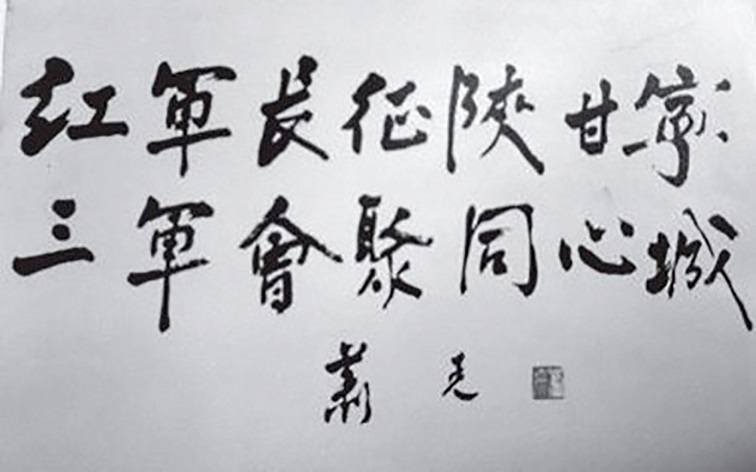 红軍長征陝甘寧
三軍會聚同心城
萧克